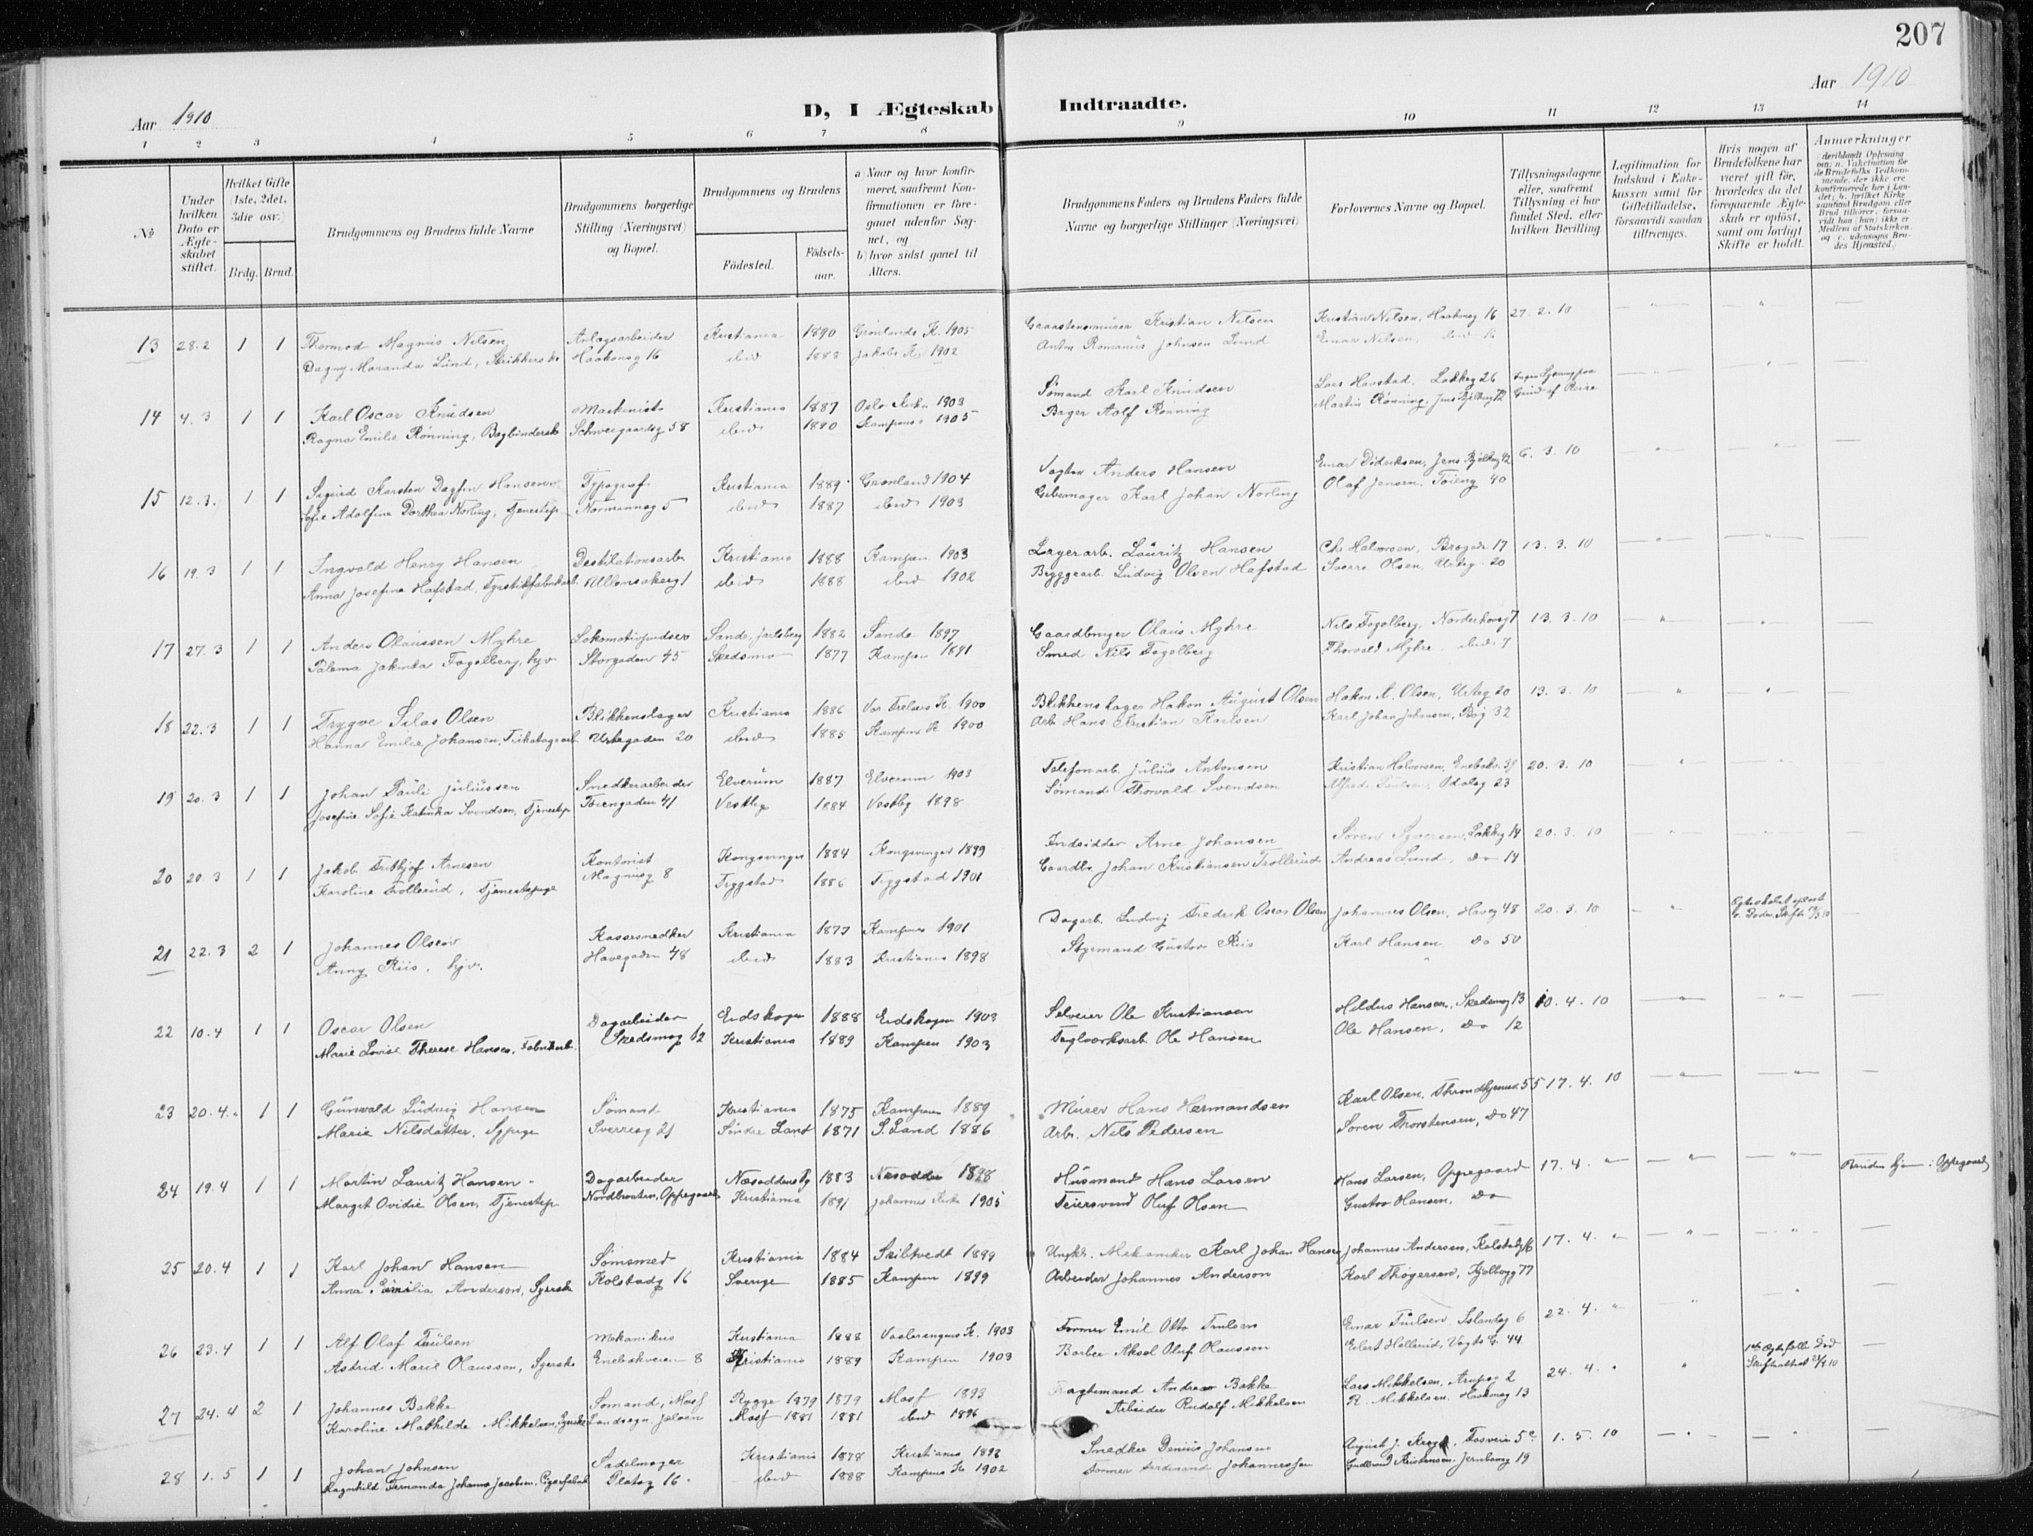 207
Aar 1910
D, I Ægteskab Indtraadte.
Aar 1910
1 2 3 4 5 6 7 8 9 10 11 12 13 14
No
Under hvilken Dato er Ægteskabet stiftet.
Hvilket Gifte (1ste, 2det, 3die osv.)
Brdg. Brud.
Brudgommens og Brudens fulde Navne
Brudgommens borgerlige Stilling (Næringsvei) og Bopæl.
Brudgommens og Brudens
Fødested.
Fødselsaar.
a) Naar og hvor konfirmeret, saafremt Konfirmationen er foregaaet udenfor Sognet, og
b) hvor sidst gaaet til Alters.
Brudgommens Faders og Brudens Faders fulde Navne og borgerlige Stillinger (Næringsvei)
Forlovernes Navne og Bopæl.
Tillysningsdagene eller, saafremt Tillysning ei har fundet Sted, efter hvilken Bevilling
Legitimation for Indskud i Enkekassen samt for Giftetilladelse, forsaavidt saadan tiltrænges.
Hvis nogen af Brudefolkene har været gift før, hvorledes da det foregaaende Ægteskab er opløst, samt om lovligt Skifte er holdt.
Anmærkninger
13 28.2 1 1 Thormod Magnus Nilsen Anlægsarbeider Kristiania 1890 Grønlands K. 1905 Kristian Nilsen Kristian Nilsen, Haakonsg 16 27.2.10
Dagny Maranda Lund, Strikkerske Haakonsg 16 ibid 1883 Jakobs K. 1902 Romanus Johnsen Lund Einar Nilsen, ibid 16
14 4.3 1 1 Karl Oscar Knudsen Maskinist Kristiania 1887 Oslo Kirke 1903 Sømand Karl Knudsen Lars Havstad, Lakkeg 26
Ragna Emilie Rønning, Bogbinderske Schweigaardsg 58 ibid 1890 Kampens 1905 Bager Adolf Rønning Martin Rønning,
15 12.3. 1 1 Sigurd Karsten Dagfin Hansen Typograf Kristiania 1889 Grønland 1904 Vogter Anders Hansen Einar Dideriksen, Jens Bjelkesg 42 6.3.10
Sofie Adolfine Dorthea Norling, Tjenestep Normannsg 5 ibid 1887 ibid 1903 Gibsmager Karl Johan Norling Olaf Jensen, Tøieng 40
16 19.3 1 1 Ingvald Henry Hansen Destilationsarb Kristiania 1888 Kampen 1903 Lagerarb. Lauritz Hansen Chr Halvorsen, Brogade 17 13.3.10
Anna Josefine Hafstad, Fyrstikfabrikarb. Ullensakerg 1 ibid 1888 ibid 1902 Bryggearb. Ludvig Olsen Hafstad Sverre Olsen, Urteg. 20
17 27.3 1 1 Anders Olaussen Myhre Lokomotivpudser Sande, Jarlsberg 1882 Sande 1897 Gaardbruger Olaus Myhre Nils Fagelberg, Norderhovsg 7 13.3.10
Palema Jakinka Fagelberg, hjv. Storgaden 45 Skedsmo 1877 Kampen 1891 Smed Nils Fagelberg Thorvald Myhre, ibid 7
18 22.3 1 1 Trygve Silas Olsen Blikkenslager Kristiania 1886 Vor Frelsers K. 1900 Blikkenslager Hakon August Olsen Hakon A. Olsen, Urteg 20 13.3.10
Hanna Emilie Johansen, Trikotagearb Urtegaden 20 ibid 1885 Kampens K 1900 Arb Hans Kristian Karlsen Karl Johan Johansen, Bøg 32
19 20.3 1 1 Johan Pauli Juliussen Snedkerarbeider Elverum 1887 Elverum 1903 Telefonarb. Julius Antonsen Kristian Halvorsen, Enebakv. 39 20.3.10
Josefine Sofie Katinka Svendsen, Tjenestep Tøiengaden 41 Vestby 1884 Vestby 1898 Sømand Thorvald Svendsen Alfred Paulsen, Odalsg 23
20 20.3 1 1 Jakob Frithjof Arnesen Kontorist Kongsvinger 1884 Kongsvinger 1899 Indsidder Arne Johansen Søren Syversen, Lakkeg 14 20.3.10
Karoline Trollerud, Tjenestepige Magnusg 8 Trygstad 1886 Trygstad 1901 Gaardbr. Johan Kristiansen Trollerud Andreas Lund, do 14
21 22.3 2 1 Johannes Olsen Kassesnedker Kristiania 1877 Kampens 1901 Dagarb. Ludvig Fredrik Oscar Olsen Johannes Olsen, Haveg 48 20.3.10
Anny Riis, hjv. Havegaden 48 ibid 1883 Kristiania 1898 Styrmand Gustav Riis Karl Hansen do 50
22 10.4 1 1 Oscar Olsen Dagarbeider Eidskogen 1888 Eidskogen 1903 Selveier Ole Kristiansen Hildus Hansen, Skedsmog 13 10.4.10
Marie Lovise Therese Hansen, Fabrikarb. Skedsmog 12 Kristiania 1889 Kampen 1903 Teglværksarb. Ole Hansen Ole Hansen, do 12
23 20.4. 1 1 Gunvald Ludvig Hansen Sømand Kristiania 1875 Kampen 1889 Murer Hans Hermandsen Karl Olsen, Throndhjemsv. 55 17.4.10
Marie Nilsdatter, Sypige Sverresg 21 Søndre Land 1871 S. Land 1886 Arb. Nils Pedersen Søren Thorstensen, do 47
24 19.4 1 1 Martin Lauritz Hansen Dagarbeider Næsodden 1883 Næsodden 1898 Husmand Hans Larsen Hans Larsen, Oppegaard 17.4. " Brudens hjem: Oppegaard
Margit Ovidie Olsen, Tjenestep Nordbraaten, Oppegaard Kristiania 1891 Johannes Kirke 1905 Feiersvend Oluf Olsen Gustav Hansen, do
25 20.4 1 1 Karl Johan Hansen Sømsmed Kristiania 1884 Skiptvedt 1899 Ungkr. Mekaniker Karl Johan Hansen Johannes Andersen, Kolstadg 16 17.4. "
Anna Emilia Anderson, Syerske Kolstadg 16 Sverige 1885 Kampen 1899 Arbeider Johannes Anderson Karl Thøgersen, Hjelbergg 77
26 23.4 1 1 Alf Olaf Paulsen Mekanikus Kristiania 1888 Vaalerengens K. 1903 Former Emil Otto Paulsen Einar Paulsen Islandsg 6 22.4. "
Astrid Marie Olaussen, Syerske Enebakveien 8 Kristiania 1889 Kampen 1903 Barber Aksel Oluf Olaussen Eilert Hellerud, Vogts G. 44
27 24.4 2 1 Johannes Bakke Sømand, Moss Rygge 1879 1879 Moss 1893 Fragtemand Andreas Bakke Lars Mikkelsen, Arupsg 2 24.4. "
Karoline Mathilde Mikkelsen, Syerske Landsogn Jeløen Moss 1881 1881 ibid 1896 Arbeider Rudolf Mikkelsen R. Mikkelsen, Haakonsg 13
28 1.5 1 1 Johan Johnsen Sadelmager Kristiania 1878 Kristiania 1893 Snedker Denius Johansen August J. Krogh, Fossvei 5c 1.5.10
Ragnhild Fernanda Johanna Jacobsen, Cigarfabrik Platug 16 ibid 1888 Kampens K 1902 Former Ferdinand Johannessen Gudbrand Kristensen, Jernbaneg 19